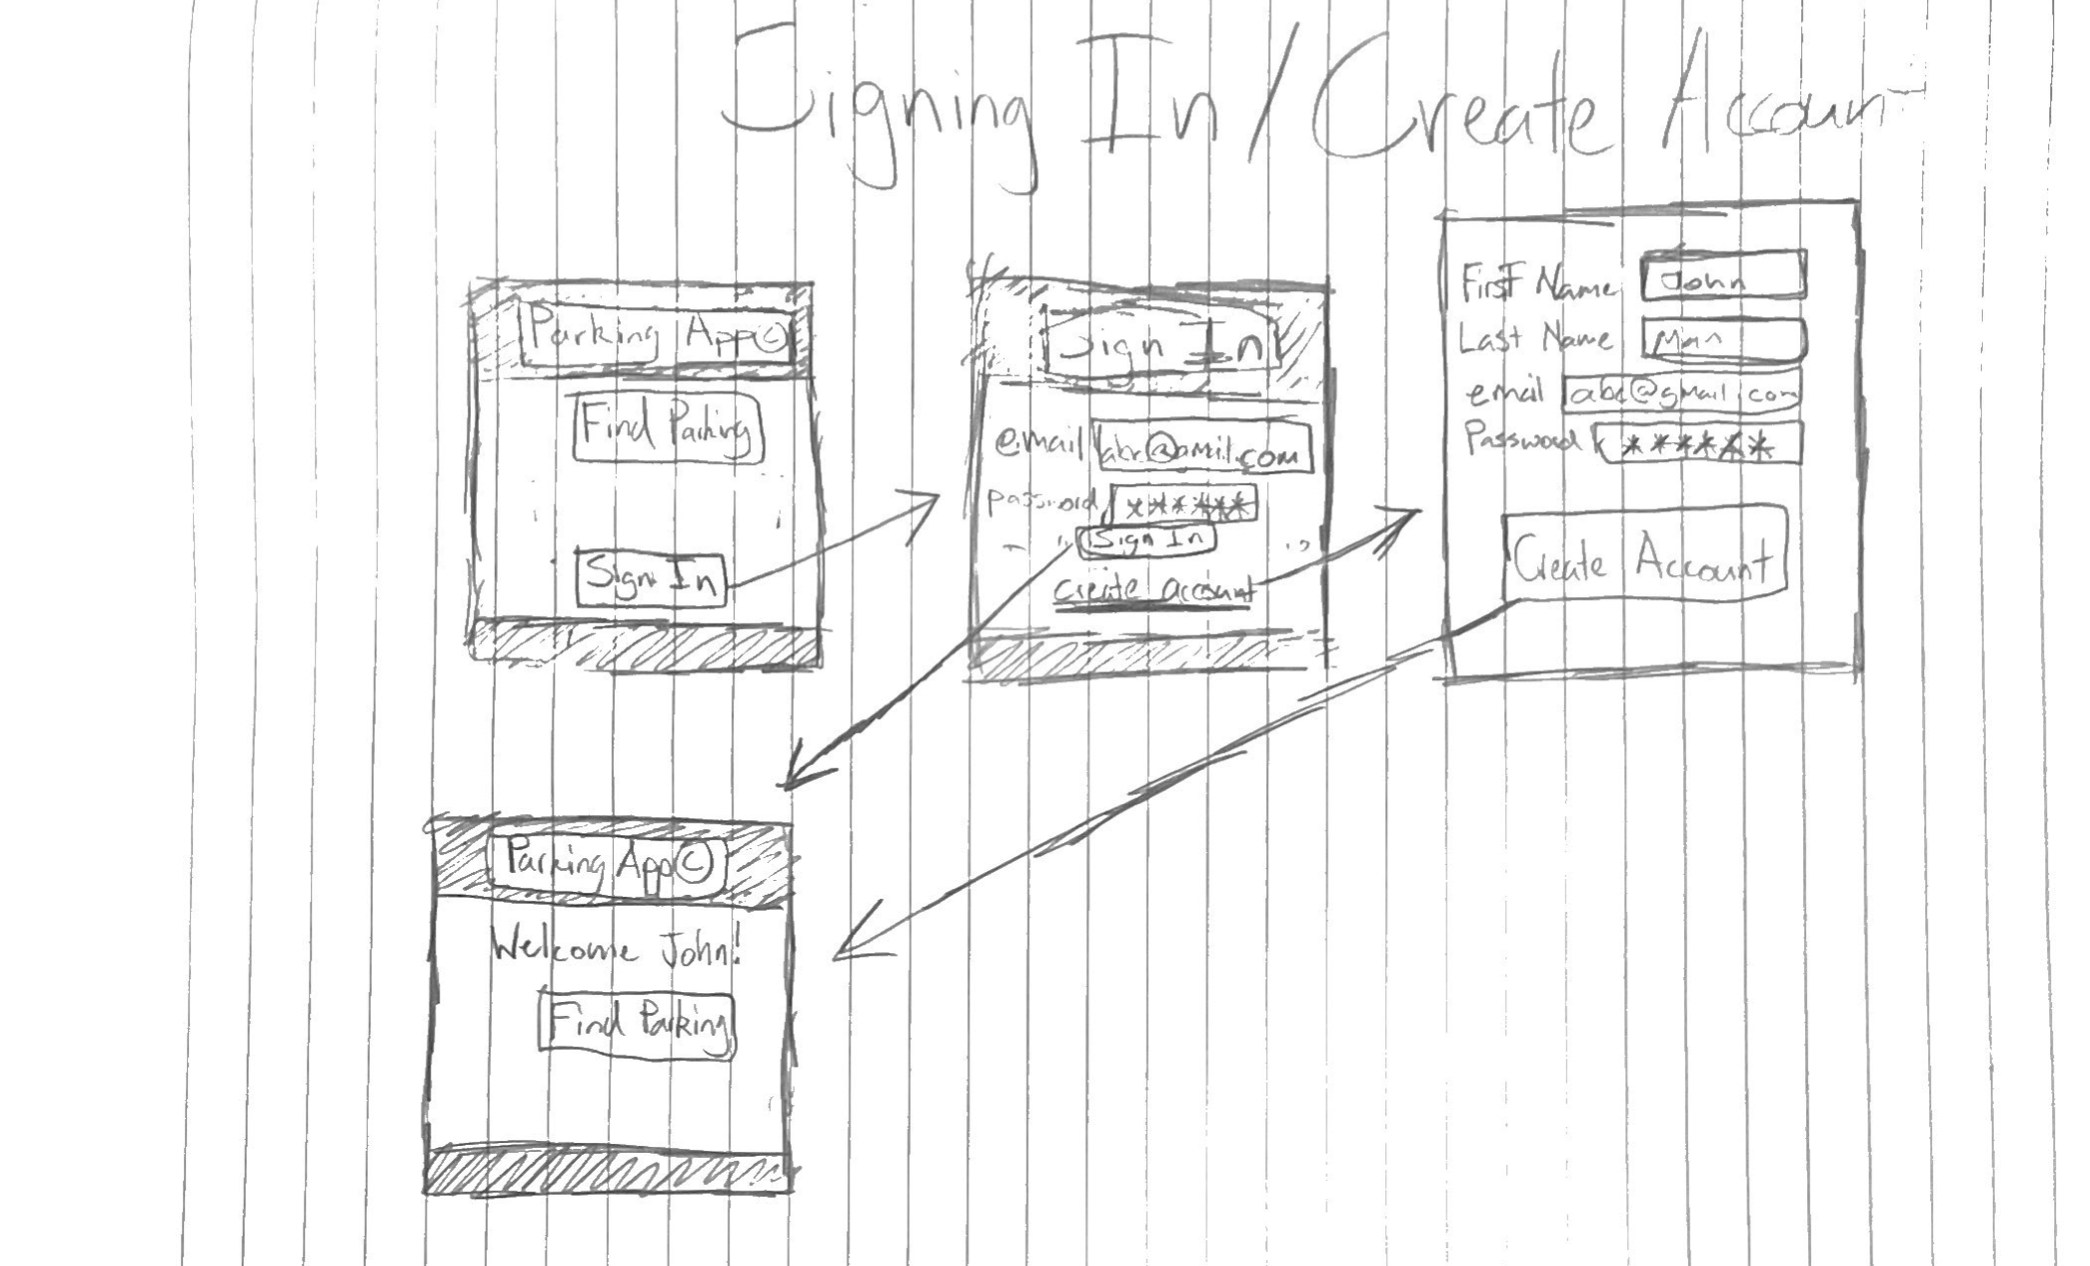 Signing In/Create Account
Parking App©
Find Parking
Sign In
Sign In
email abc@gmail.com
password ******
Sign In
create account
First Name John
Last Name Man
email abc@gmail.com
Password ******
Create Account
Parking App©
Welcome John!
Find Parking